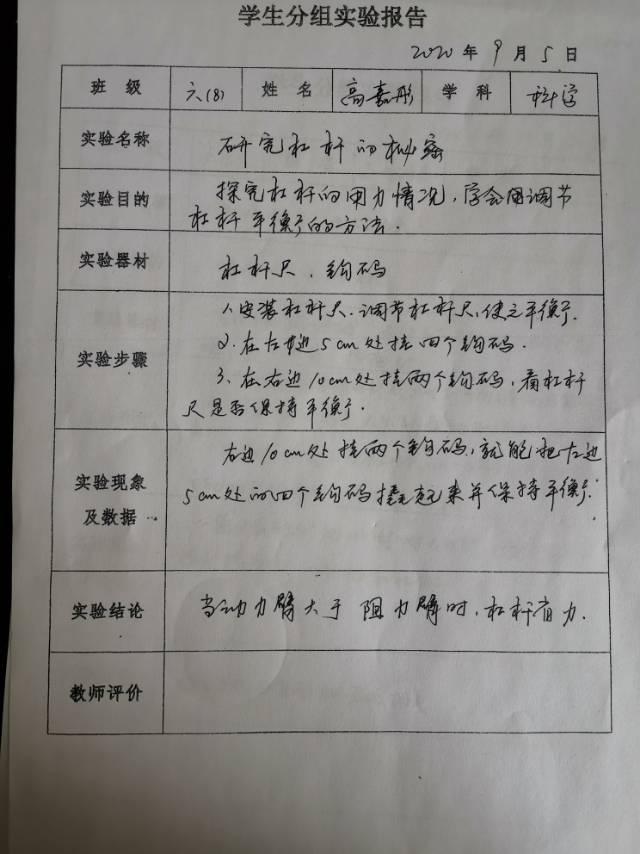 学生分组实验报告
2020 年 9 月 5 日
班 级 六(8) 姓 名 高嘉彤 学 科 科学
实验名称 研究杠杆的秘密
实验目的 探究杠杆的用力情况,学会用调节
杠杆平衡的方法.
实验器材 杠杆尺、钩码
实验步骤
1、安装杠杆尺.调节杠杆尺,使之平衡.
2.在左边5cm处挂四个钩码.
3、在右边10cm处挂两个钩码,看杠杆
尺是否保持平衡.
实验现象
及数据
右边10cm处挂两个钩码,就能把左边
5cm处的四个钩码撬起来并保持平衡.
实验结论 当动力臂大于阻力臂时,杠杆省力.
教师评价